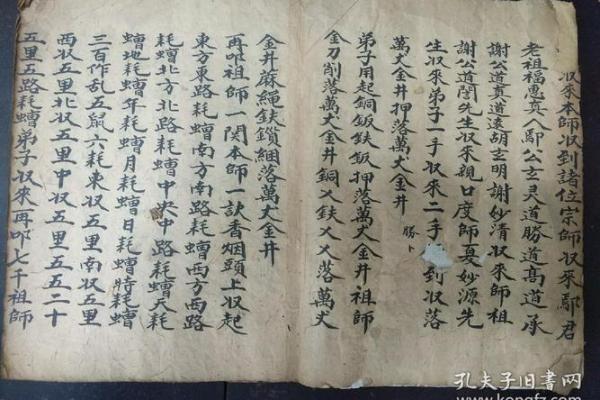 収來本師収到諸位宗師収來鄢君
老祖福惠真人鄢公玄灵道勝道高道承
謝公真道遠胡玄明謝妙清収來師祖
謝公道先生収來親口度師夏妙源先
生収來弟子一手収來二手到収落
萬丈金井押落萬丈金井
弟子用起銅鈑鈇鈑押落萬丈金井祖師
金刀削落萬丈金井銅乂鈇乂乂落萬丈
金井蔴繩鈇鎖綑落萬丈金井
再叩祖師一関本師一訣香烟頭上収起
東方東路耗䗬南方南路耗䗬西方西路
耗䗬北方北路耗䗬中央中路耗䗬天耗
䗬地耗䗬年耗䗬月耗䗬日耗䗬時耗䗬
三百作乱五鼠六耗東収五里南収五里
西収五里北収五里中収五里五五二十
五里五路耗䗬弟子収來再叩七千祖師
孔夫子旧书网
www.kongfz.com